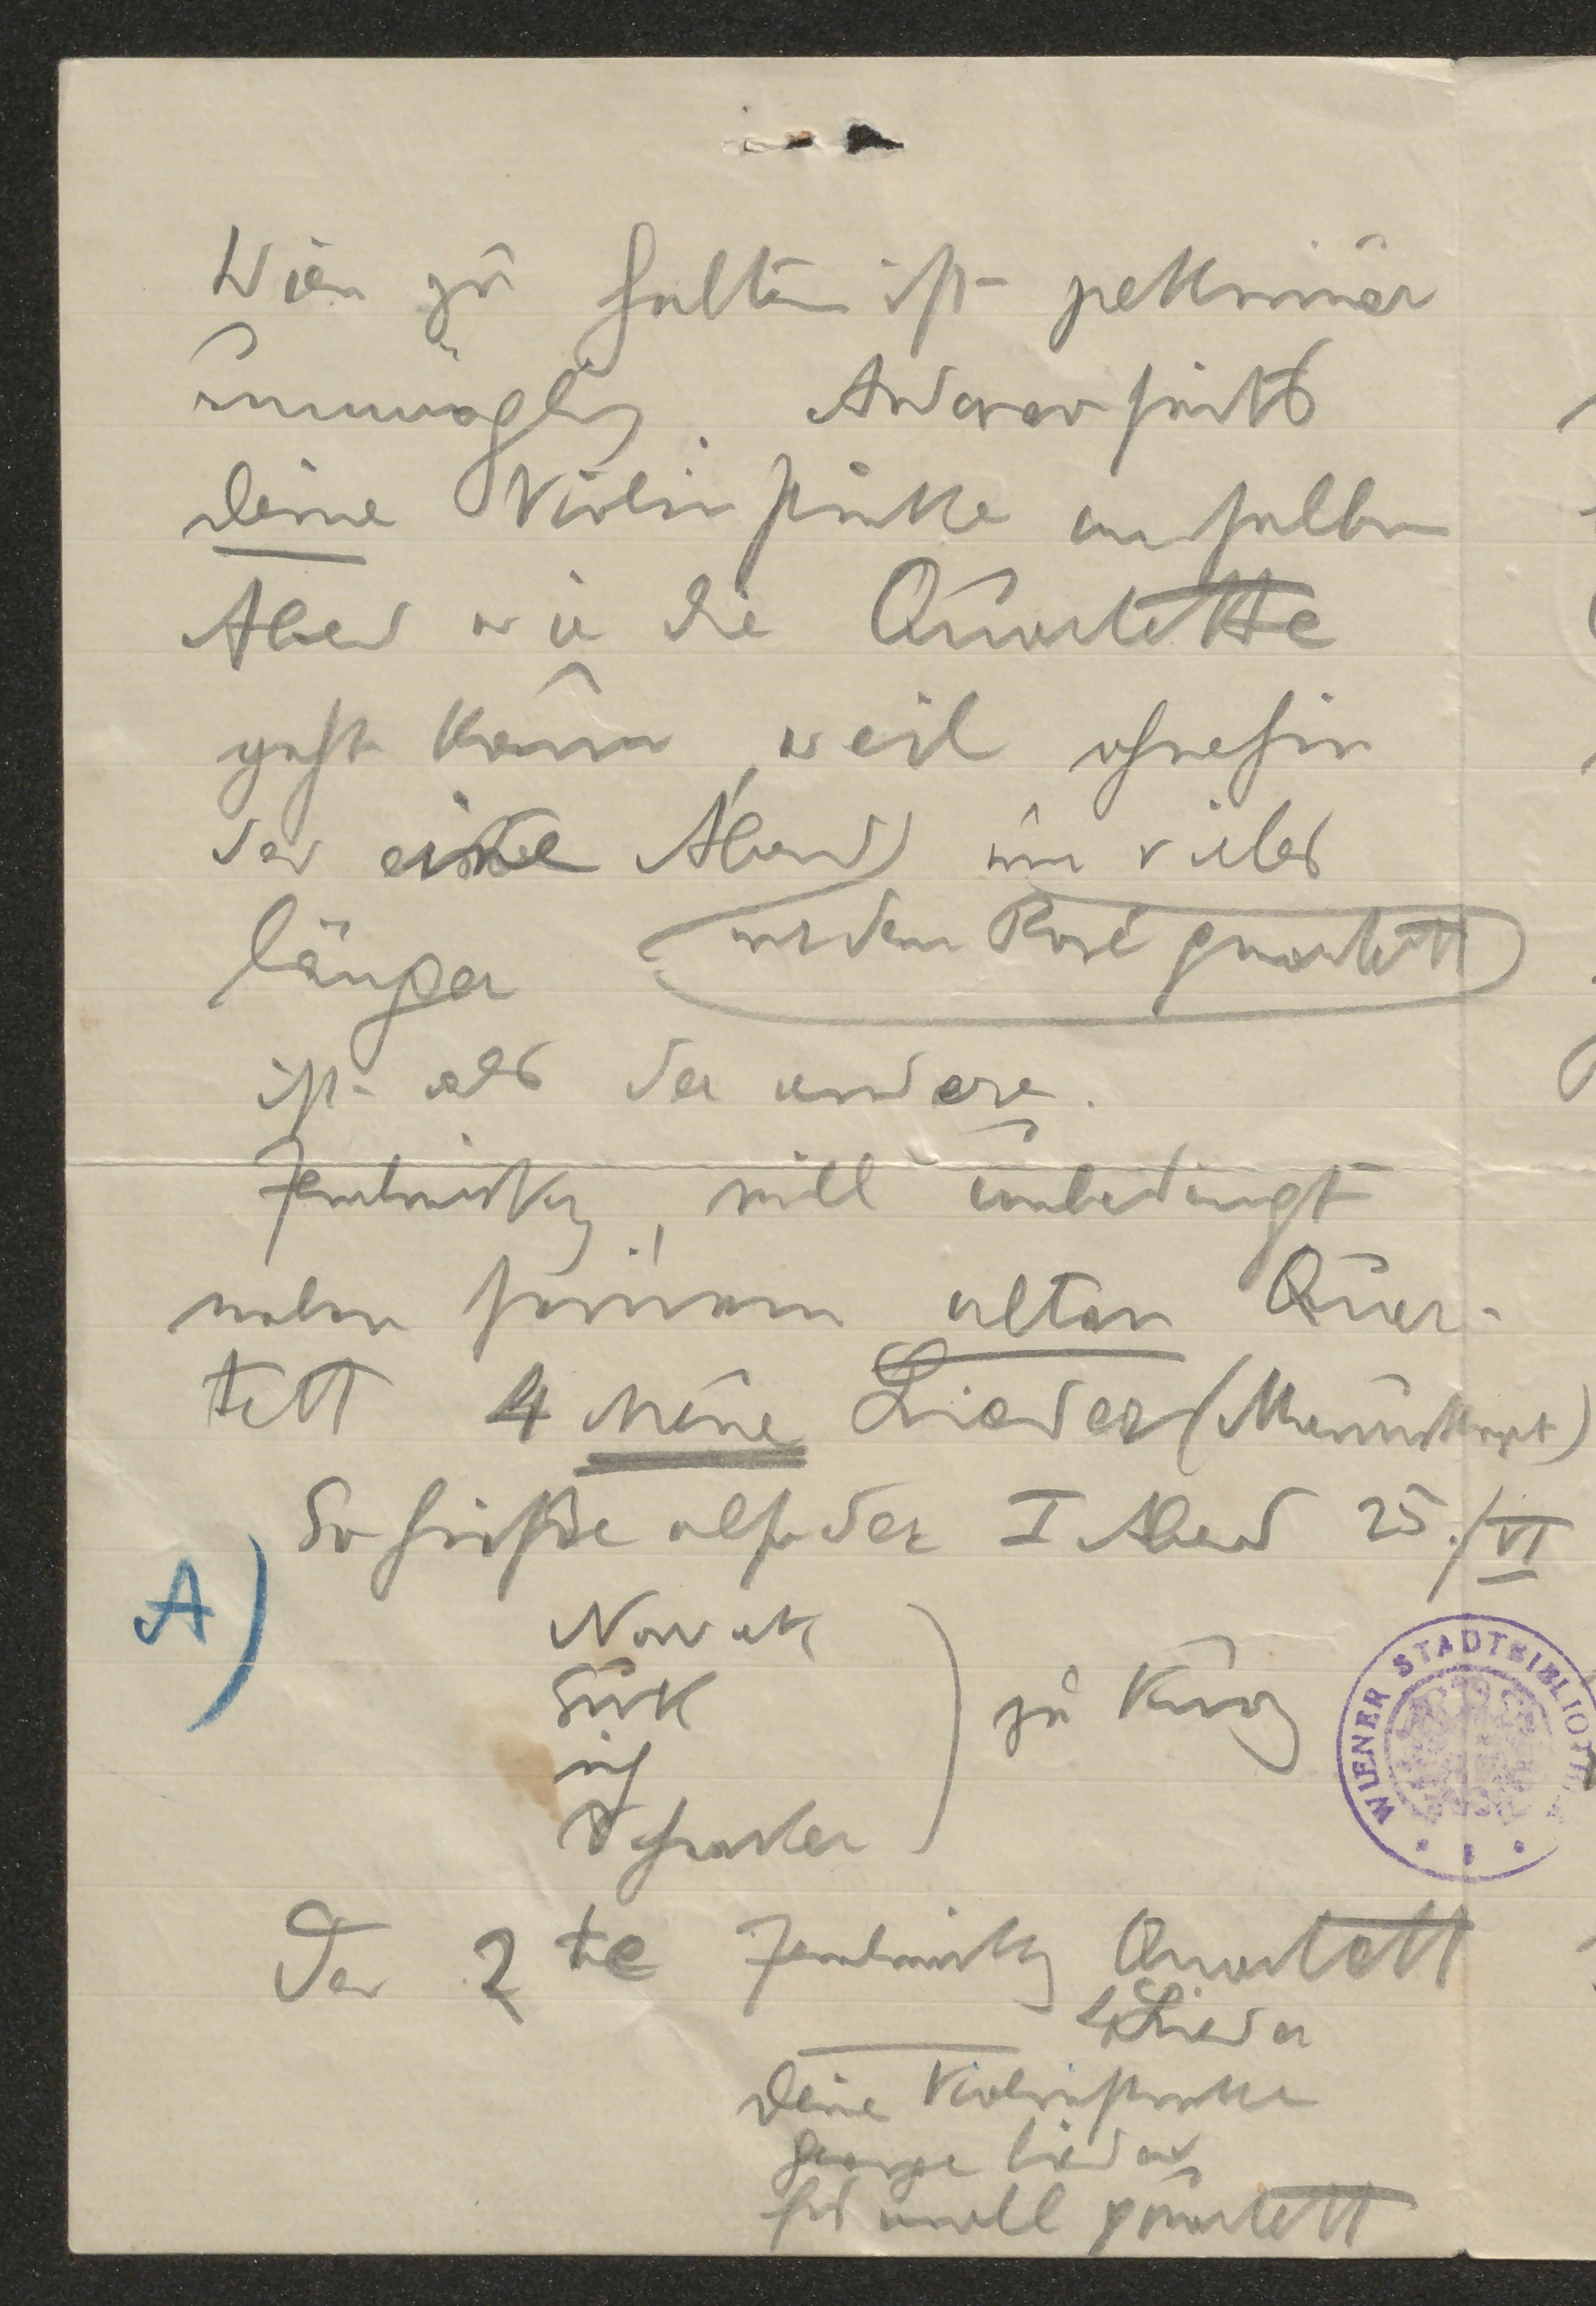 Wien zu halten ist pekuniär
unmöglich. Andererseits
deine Violinstücke am selben
Abend wie die Quartette
geht kaum, weil ohnehin
der eine Abend um vieles
länger (mit dem Rosé quartett)
ist als der andere.
Zemlinsky, will unbedingt
neben seinem alten Quar-
tett 4 neue Lieder (Manuskript)
So hieße also der I Abend 25./VI
A)
Novak
Suk
ich
Schreker
zu kurz
WIENER STADTBIBLIOTHEK
Der 2te Zemlinsky Quartett
4 Lieder
Deine Violinstücke
George lieder
fis moll quartett